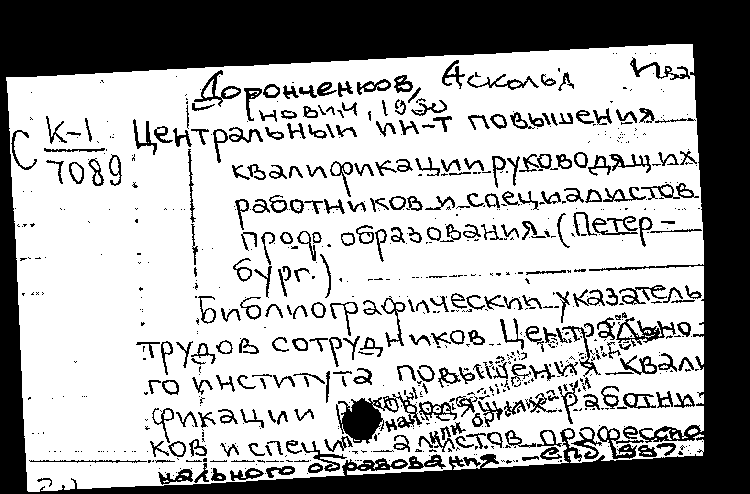 Доронченков, Аскольд Ива-
нович, 1930
С К-1 Центральный ин-т повышения
7089 квалификации руководящих
работников и специалистов
проф. образования. (Петер-
бург.).
Библиографический указатель
трудов сотрудников Центрально-
го института повышения квали-
фикации работни-
ков и специалистов профессио-
нального образования. - СПб, 1997.
или организации